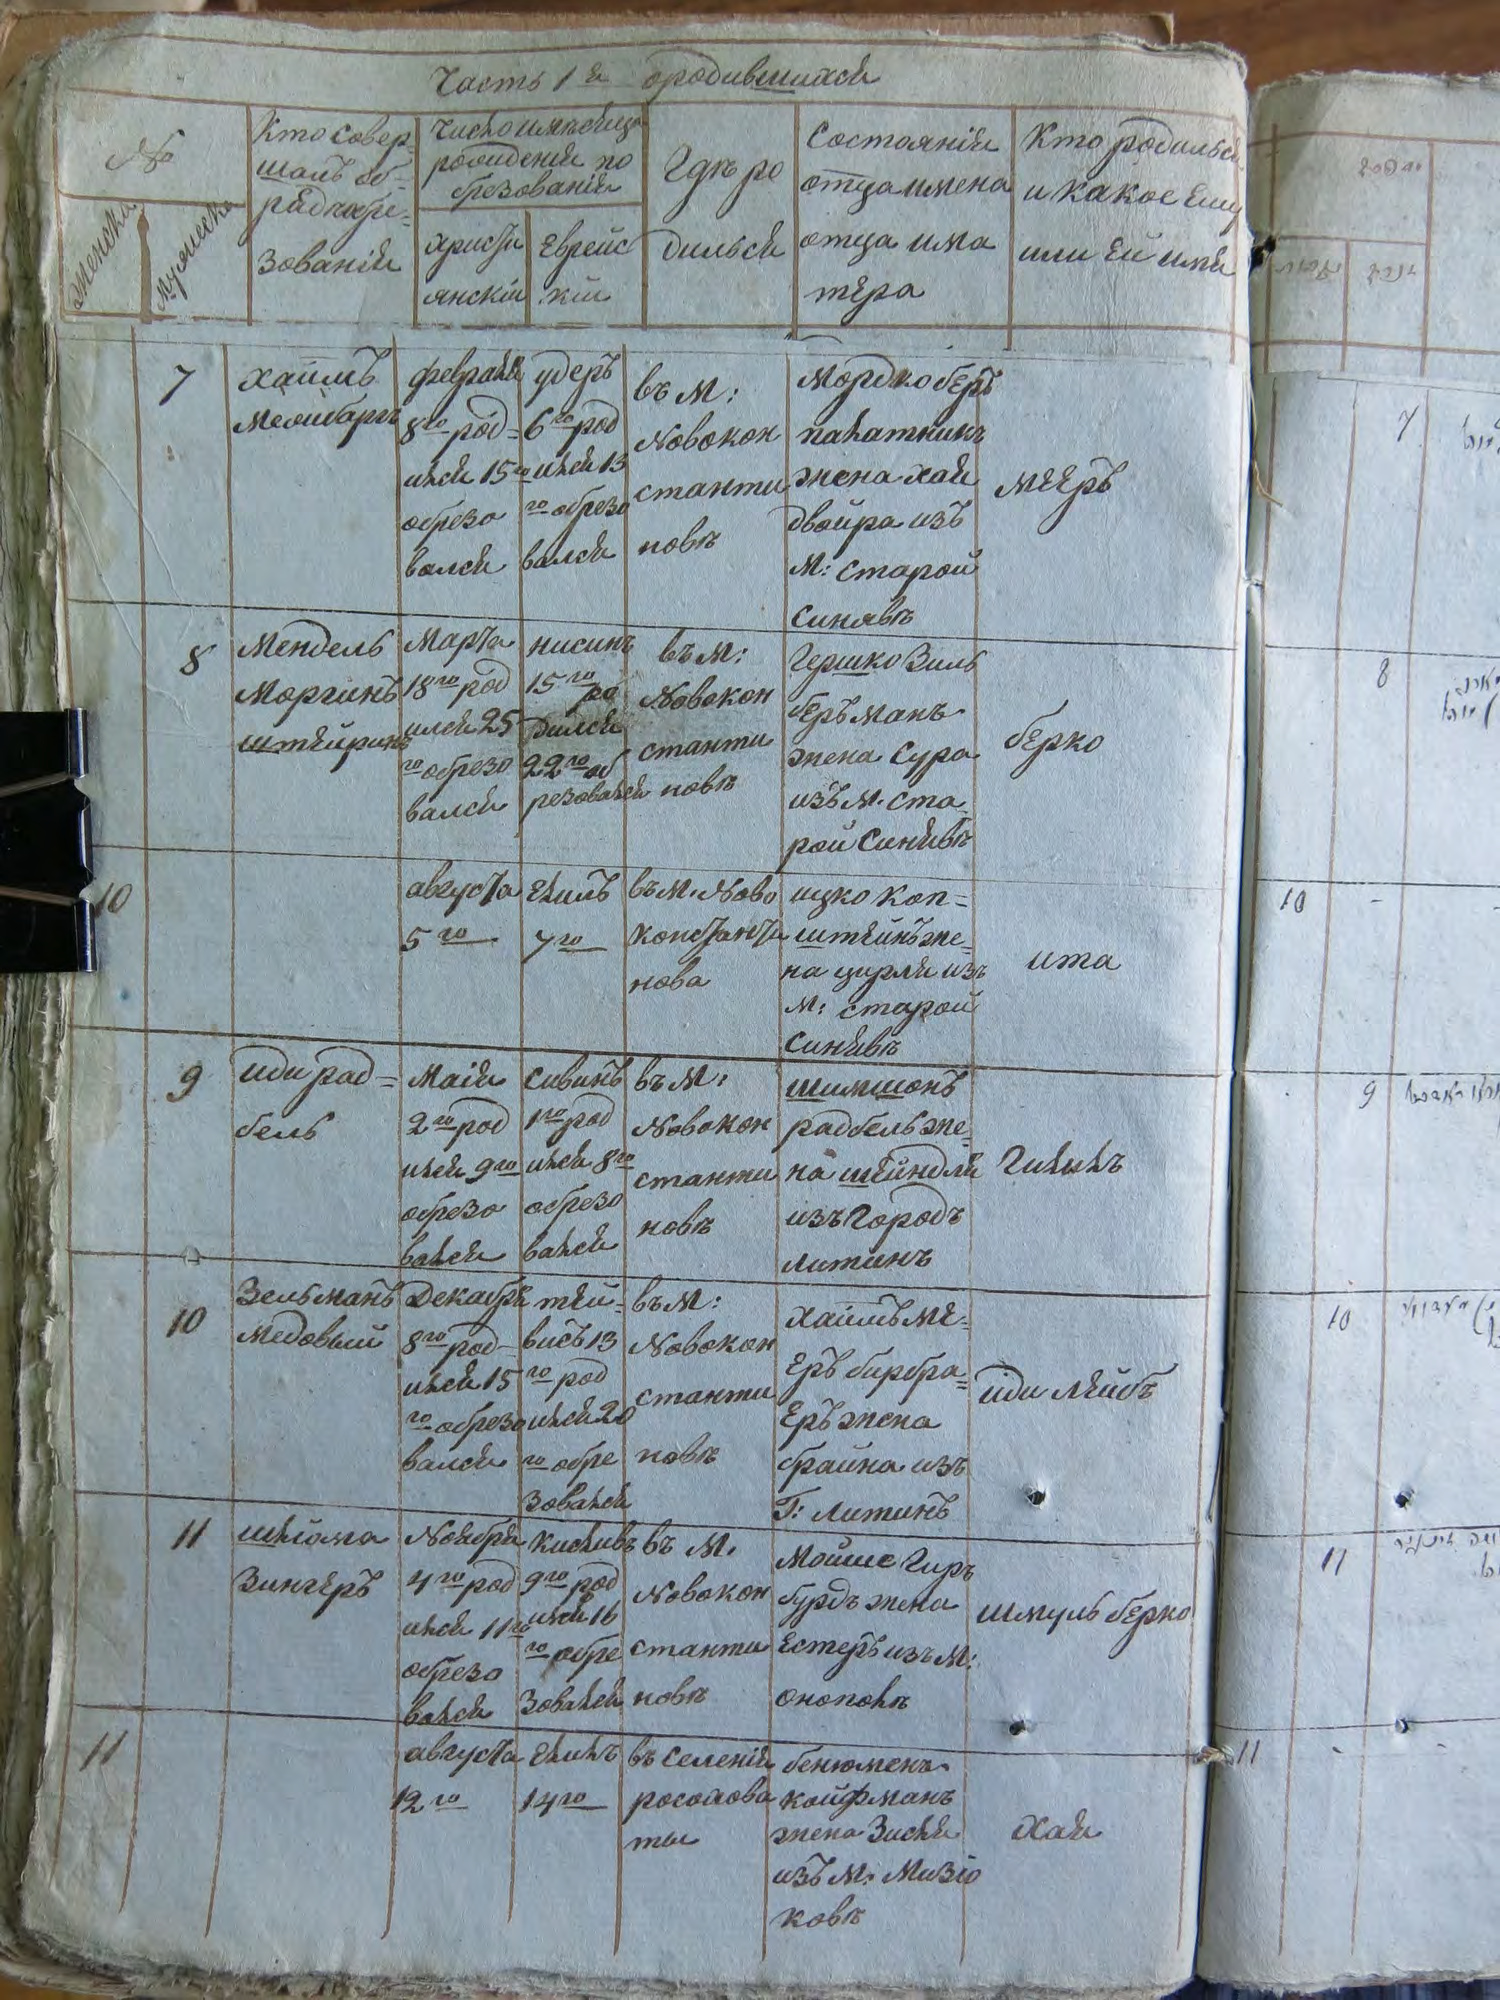 Часть 1я о родившихся
№
Женска
Мужеска
Кто совер-
шалъ об-
рядъ обре-
зованія
Число и месяца
рождения и об
резованія
Христи
янскій
Еврейс
кій
Где ро
дился
Состояніе
отца имена
отца и ма
тера
Кто родился
и какое ему
или ей имя
7
Хаимъ
февраля
8го род=
ился 15го
обрезо
вался
удеръ
6го род
ился 13
го обрезо
вался
въ М:
Новокон
станти
новъ
Мордко беръ
жена Хая
двойра изъ
М: Старой
Синявъ
мееръ
8
Мендель
Моргинъ
штейринъ
Марта
18го род
ился 25
го обрезо
вался
нисинъ
15го ро
дился
22го об
резовался
въ М:
Новокон
станти
новъ
Гершко Зиль
берманъ
жена Сура
изъ М. Ста
рой Синявъ
берко
10
августа
5го
Елилъ
7го
въ М. Ново
константи
нова
ицко Коп=
штейнъ же=
на цирля изъ
М: Старой
Синявъ
ита
9
иди рад=
бель
Мая
2го род
ился 9го
обрезо
вался
сивинъ
1го род
ился 8го
обрезо
вался
въ М:
Новокон
станти
новъ
шимшонъ
радбель же=
на шейндля
изъ Городъ
литинъ
Гилилъ
10
Зельманъ
Медовый
Декабря
8го род-
ился 15
го обрезо
вался
тей=
висъ 13
го род
ился 20
го обре
зовался
въ М:
Новокон
станти
новъ
Хаимъ Ме-
еръ бирбра=
еръ жена
брайна изъ
Г: литинъ
иди лейбъ
11
шлiома
Зингеръ
Ноября
4го род
ился 11го
обрезо
вался
кисливъ
9го род
ился 16
го обре
зовался
въ М.
Новокон
станти
новъ
Мойше Гир
бурдъ жена
Естеръ изъ М:
онополъ
шмуль берко
11
августа
12го
Елилъ
14го
въ селеній
росохова
ты
бенюменъ
койфманъ
жена Зисля
изъ М: Мизiо
ковъ
Хая
7
8
10
9
10
11
11